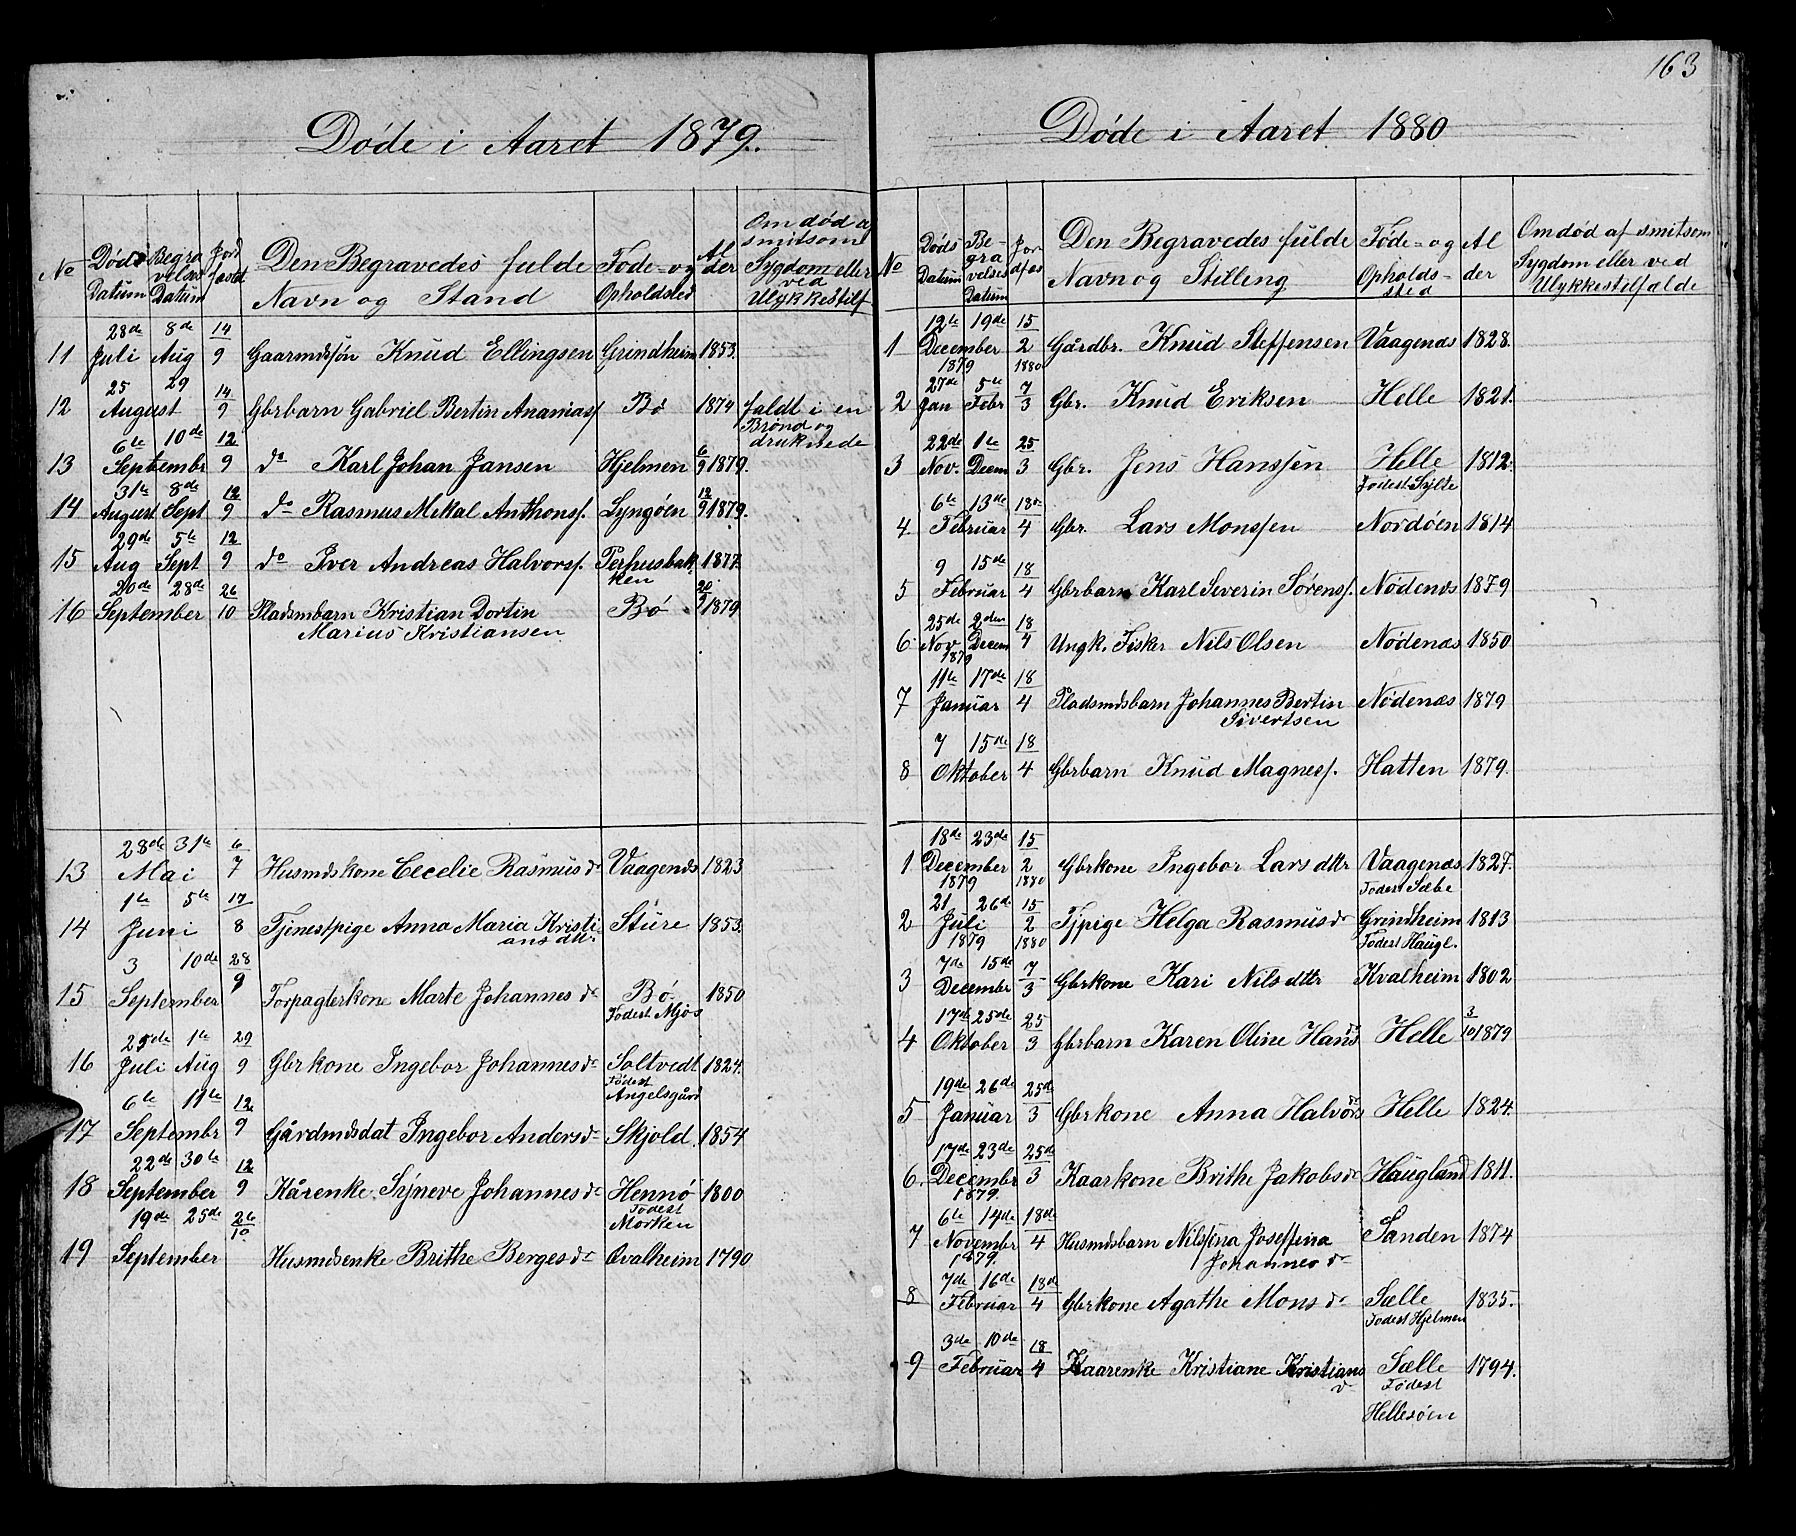 Døde i Aaret 1879.
No Døds Datum Begravelses Datum Jordfæstd Den Begravedes fulde Navn og Stand Føde- og Opholdsted Alder Om død af smitsom Sygdom eller ved Ulykkestilf
28de 8de 14
11 Juli Aug 9 Gaarmdssøn Knud Ellingsen Grindheim 1853.
25 29 14
12 August 9 Gbrbarn Gabriel Bertin Ananiass. Bø 1874 faldt i en
Brønd og
druknede
6te 10de 12 6
13 Septembr 9 do Karl Johan Jansen Hjelmen 9 1879.
31te 8de 12 12
14 August Sept 9 do Rasmus Mikal Anthons. Lyngøen 9 1879.
29de 5te 12
15 Aug Sept 9 do Iver Andreas Halvors. Perhusbak 1877.
ken
20de 28de 26 20
16 September 10 Pladsmbarn Kristian Dortin Bø 9 1879
Marius Kristiansen
28de 31te 6
13 Mai 7 Husmdskone Cecelie Rasmusdr Vaagenæs 1823
1te 5te 17
14 Juni 8 Tjenestpige Anna Maria Kristi Sture 1853.
ans dtr.
3 10de 28
15 September 9 Forpagterkone Marte Johannesdr Bø 1850
Fødest Mjøs
25de 1te 29
16 Juli Aug 9 Gbrkone Ingebor Johannesdr Soltvedt 1824.
Fødest
Angelsgård
6te 11te 12te
17 Septembr 9 Gårdmdsdat Ingebor Andersdr Skjold 1854
22de 30te 12
18 September 9 Kårenke. Syneve Johannesdr Hennø 1800
Fødest
Morken
19de 25de 26
10
19 September Husmdsenke Brithe Bergesdr Qvalheim 1790
163
Døde i Aaret 1880
No Døds Datum Begravelses Datum Jordfæs Den Begravedes fulde Navn og Stilling Føde- og Opholdssted Alder Om død af smitsom Sygdom eller ved Ulykkestilfælde
12te 19de 15
1 December 2 Gårdbr. Knud Steffensen Vaagenæs 1828.
1879 1880
27de 5te 7
2 Jan Febr 3 Gbr. Knud Eriksen Helle 1821.
22de 1te 25
3 Nov. Decem 3 Gbr. Jens Hanssen Helle 1812.
Fødest Sylte
6te 13de 18de
4 Februar 4 Gbr. Lars Monssen Nordøen 1814
9 15de 18
5 Februar 4 Gbrbarn Karl Severin Sørens. Nødenæs 1879
25de 2den 18
6 Nov Decem 4 Ungk. Fisker Nils Olsen Nødenæs 1850
1879
11te 17de 18
7 Januar 4 Pladsmdsbarn Johannes Bertin Nødenæs 1879
Sivertsen
7 15de 18
8 Oktober 4 Gbrbarn Knud Magness. Hatten 1879.
18de 23de 15
1 December 2 Gbrkone Ingebor Lars dttr Vaagenæs 1827.
1879 1880 Fødest Sæbe
21 26de 15
2 Juli 2 Tjpige Helga Rasmusdr Grindheim 1813
1879 1880 Fødest Haugl.
7de 15de 7
3 December 3 Gbrkone Kari Nilsdttr Kvalheim 1802
17de 25de 25 3
4 Oktober 3 Gbrbarn Karen Oline Hansdr Helle 10 1879
19de 26de 25de
5 Januar 3 Gbrkone Anna Halvorsdr Helle 1824.
17de 23de 25de
6. Decembr 3 Kaarkone Brithe Jakobsdr Haugland 1811.
1879.
6te 14de 18de
7 Novembr 4 Husmdsbarn Nilssina Joseffina Sanden 1874
1879. Johannesdr
7de 16de 18de
8 Februar 4 Gbrkone Agathe Monsdr Sælle 1835.
Fødest Hjelmen
3de 10de 18
9 Februar 4 Kaarenke Kristiane Kristians Sælle 1794.
dr Fødest
Hellesøen